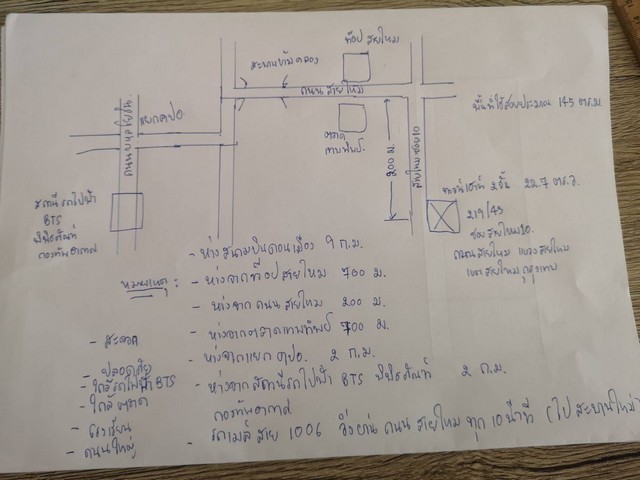 ท็อป สายไหม
สะพานข้ามคลอง
ถนน สายไหม
ตลาด
แยก คปอ
ถนนพหลโยธิน
200 ม.
สายไหมซอย10
พื้นที่ใช้สอยประมาณ 145 ตร.ม.
ทาวน์เฮ้าน์ 2 ชั้น 22.7 ตร.ว.
219/43
ซอย สายไหม10.
ถนน สายไหม แขวง สายไหม
เขต สายไหม กรุงเทพ
สถานีรถไฟฟ้า
BTS
พิพิธภัณฑ์
กองทัพอากาศ
หมายเหตุ :
- ห่างสนามบินดอนเมือง 9 ก.ม.
- ห่างจากท็อปสายไหม 700 ม.
- ห่างจาก ถนน สายไหม 200 ม.
- ห่างจากตลาดเทพทิพย์ 700 ม.
- ห่างจากแยก คปอ. 2 ก.ม.
- ห่างจาก สถานีรถไฟฟ้า BTS พิพิธภัณฑ์ 2 ก.ม.
กองทัพอากาศ
- รถเมล์ สาย 1006 วิ่งผ่าน ถนน สายไหม ทุก 10 นาที (ไป สะพานใหม่)
- สะดวก
- ปลอดภัย
- ใกล้รถไฟฟ้า BTS
- ใกล้ ตลาด
- โรงเรียน
- ถนนใหญ่